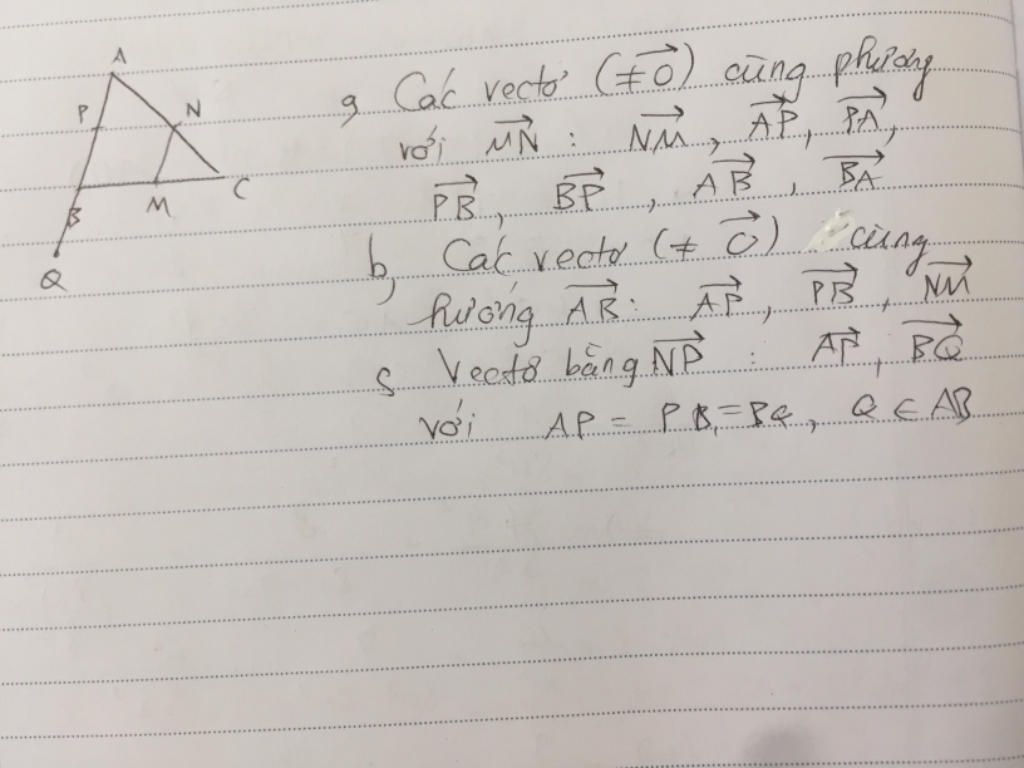 A
P
N
B
M
C
Q
a, Các vectơ (≠ \vec{0}) cùng phương
với \vec{MN} : \vec{NM}, \vec{AP}, \vec{PA},
\vec{PB}, \vec{BP}, \vec{AB}, \vec{BA}
b, Các vectơ (≠ \vec{0}) cùng
hướng \vec{AB}: \vec{AP}, \vec{PB}, \vec{NM}
c, Vectơ bằng \vec{NP} : \vec{AP}, \vec{BQ}
với AP = PB = BQ, Q ∈ AB